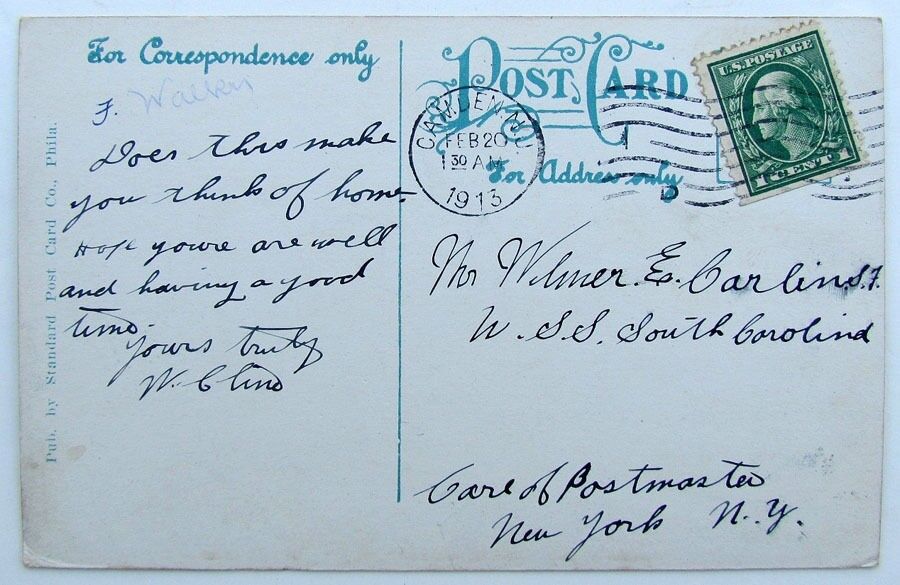 For Correspondence only
F. Walker
Does this make
you think of home.
Hope youre are well
and having a good
time.
Yours truly
W. Cline
Pub. by Standard Post Card Co., Phila.
POST CARD
For Address only
CAMDEN, N.J.
FEB 20
1 30 AM
1913
U.S. POSTAGE
1 CENT 1
Mr Wilmer. E. Carlin. S. F.
U. S. S. South Carolina
Care of Postmaster
New York N. Y.